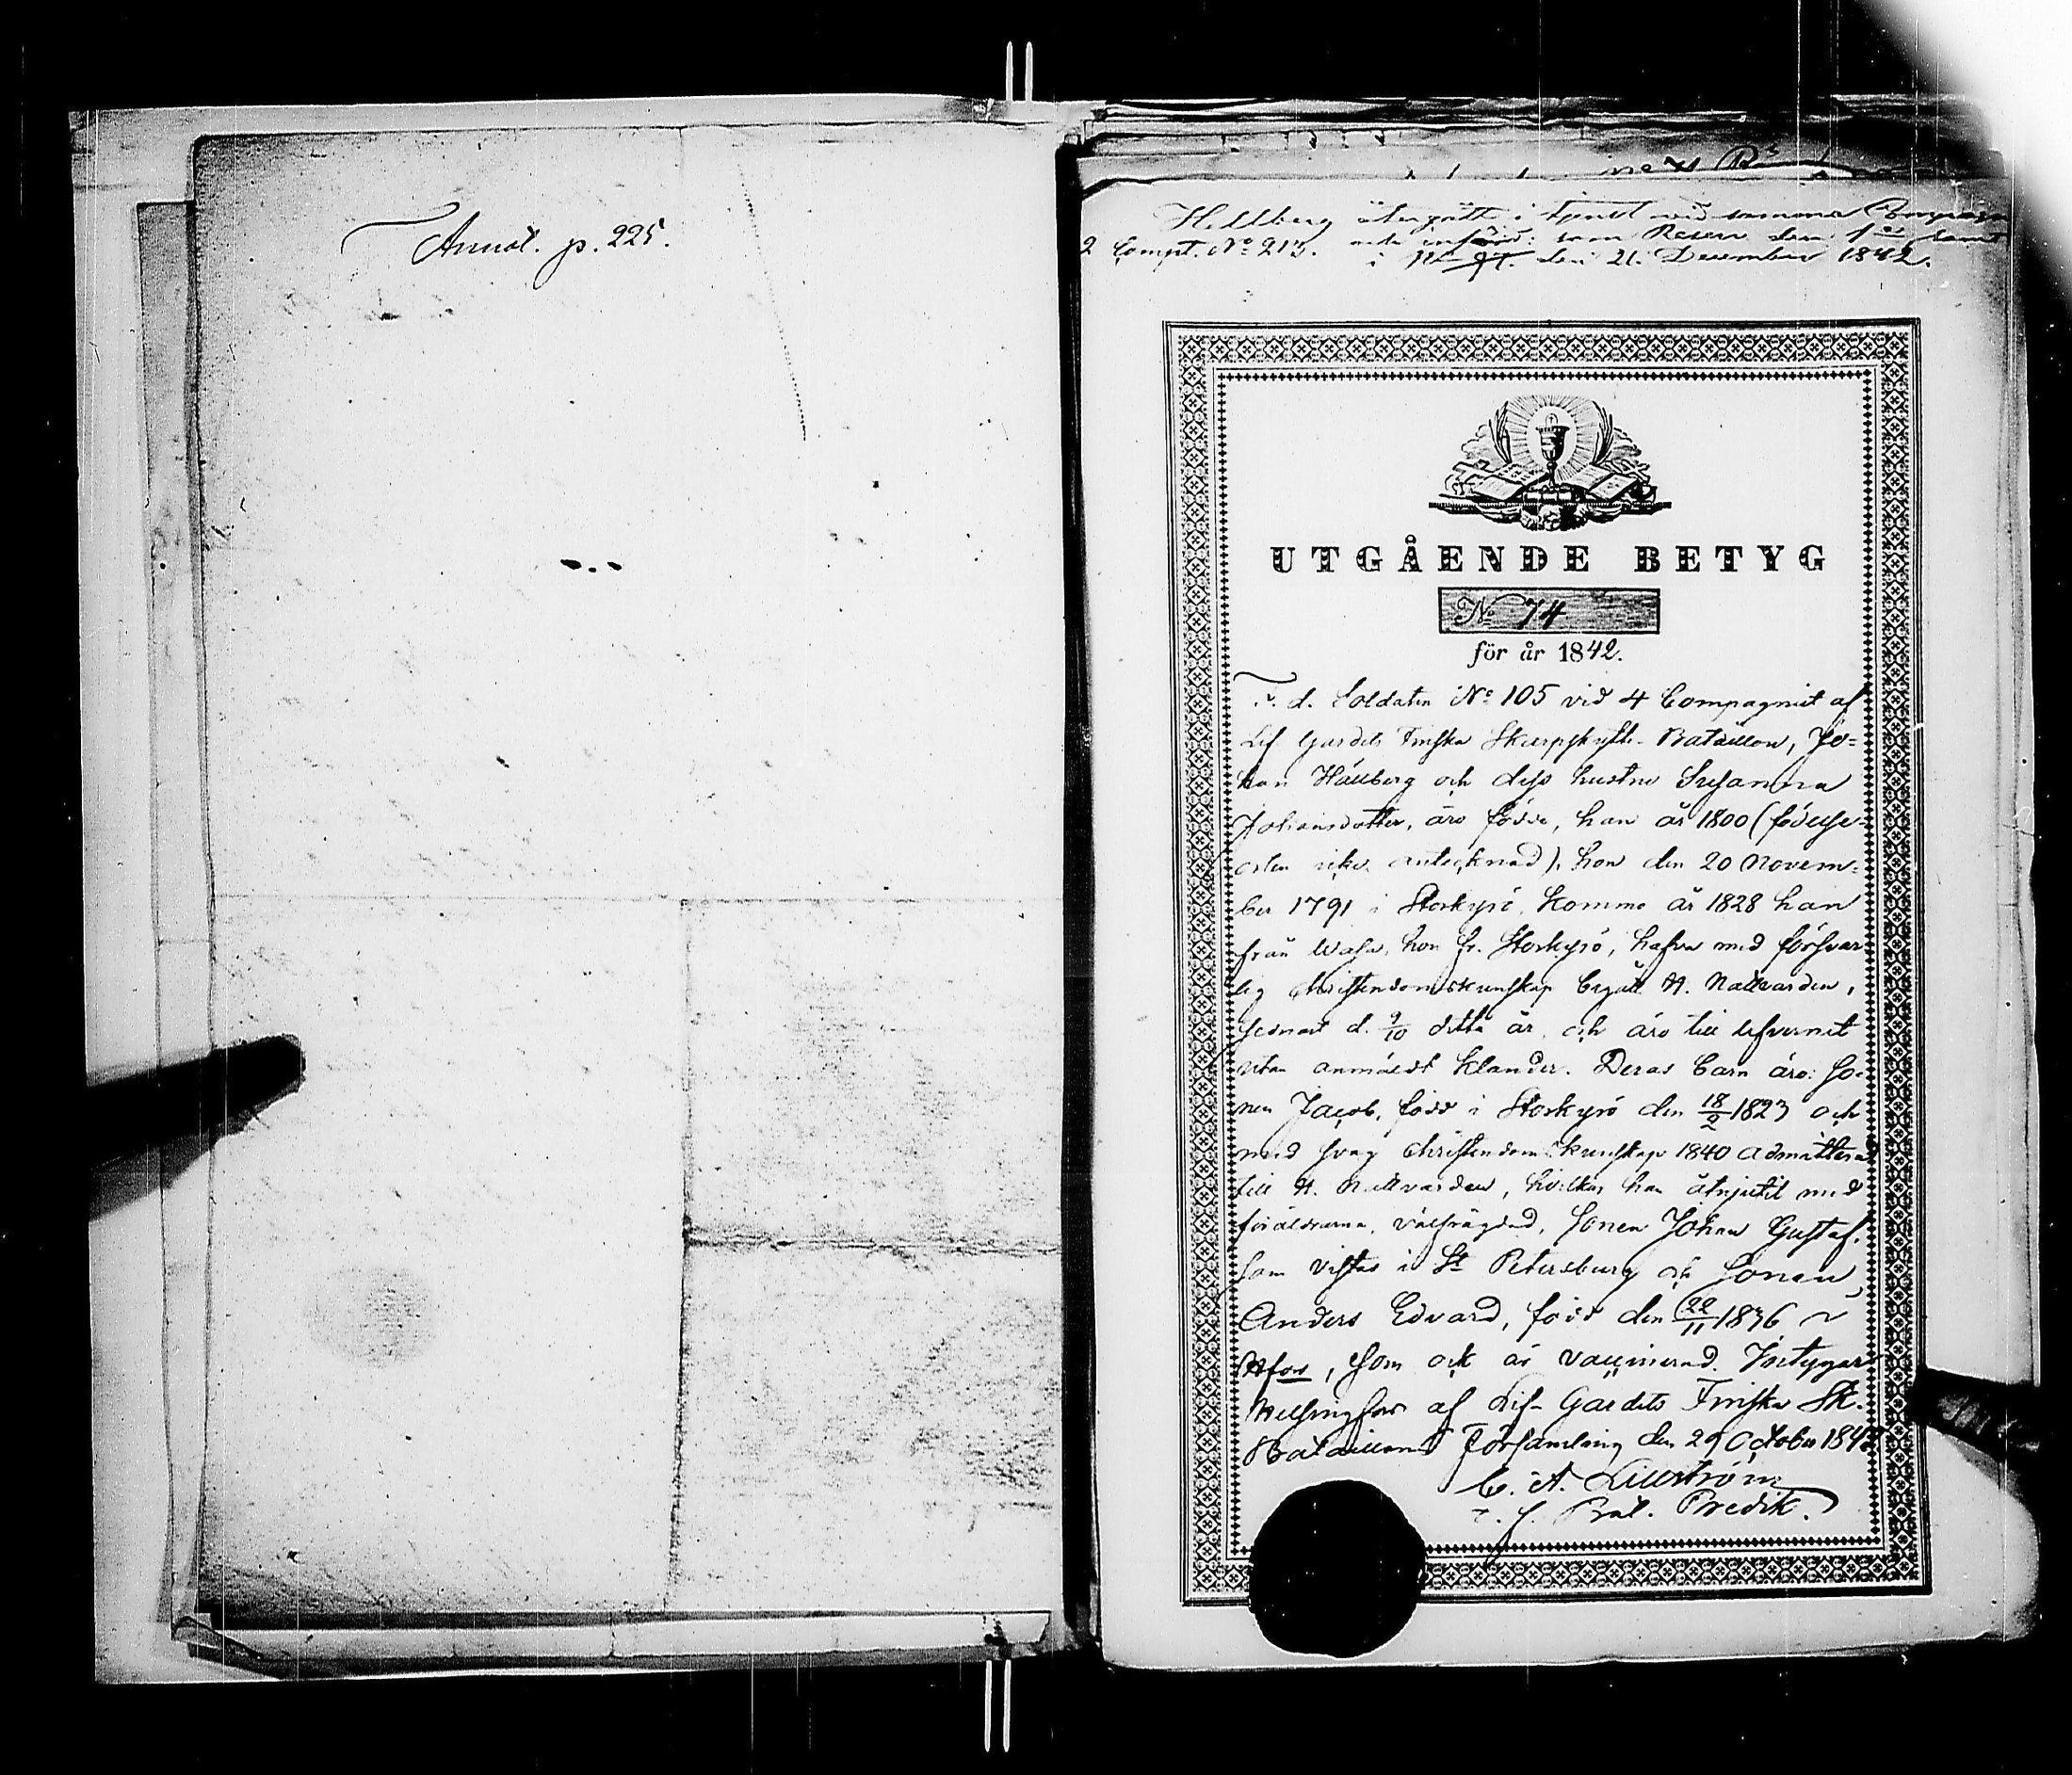 Annot. p. 225.
Hellberg återgått i tjenst vid samma
2 Compt. No 213. som Reserv den samt
i den 21 December 1842.
UTGÅENDE BETYG
No 74
för år 1842.
F. d. Soldaten No 105 vid 4 Compagniet af
Lif Gardets Finska Skarpskytte-Bataillon, Jo=
han Hällberg och dess hustru Susanna
Johansdotter, äro födde, han år 1800 (födelse-
orten icke antecknad), hon den 20 Novem=
ber 1791 i Storkyrö. Komne år 1828 han
från Wasa, hon fr. Storkyrö, hafva med försvar
lig Christendomskunskap begått H. Nattvarden,
sednast d. 9/10 detta år, och äro till lefvernet
utan anmäldt klander. Deras barn äro: So-
nen Jacob, född i Storkyrö den 18/2 1823 och
med svag Christendomskunskap 1840 admitterad
till H. Nattvarden, hvilken han åtnjutit med
föräldrarna, välfrägdad, Sonen Johan Gustaf,
som vistas i St Petersburg och Sonen
Anders Edvard, född den 22/11 1836
Hfors, som ock är vaccinerad. Intygar
Helsingfors af Lif-Gardets Finska Sk.
Bataillons Församling den 29 October 1842
C. A. Lillström
Bat. Predik.